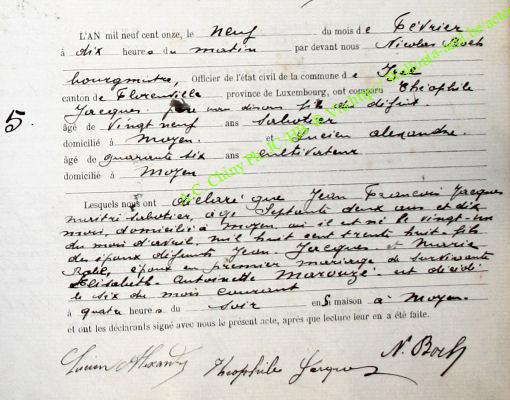 L'AN mil neuf cent onze, le neuf du mois de Février
à dix heures du matin par devant nous Nicolas Boch
bourgmestre, Officier de l'état civil de la commune de Izel
canton de Florenville province de Luxembourg, ont comparu Théophile
Jacques, nous disons fils du défunt.
âgé de vingt neuf ans sabotier
domicilié à Moyen. et Lucien Alexandre.
âgé de quarante six ans cultivateur
domicilié à Moyen
5.
Lesquels nous ont déclaré que Jean François Jacques
maître sabotier, âgé Septante deux ans et dix
mois, domicilié à Moyen où il est né le vingt-un
du mois d'avril mil huit cent trente huit fils
des époux défunts Jean Jacques et Marie
époux en premier mariage de survivante
Elisabeth Antoinette Marouzé est décédé
le six du mois courant
à quatre heures du soir en sa maison à Moyen.
et ont les déclarants signé avec nous le présent acte, après que lecture leur en a été faite.
Lucien Alexandre Théophile Jacques N. Boch